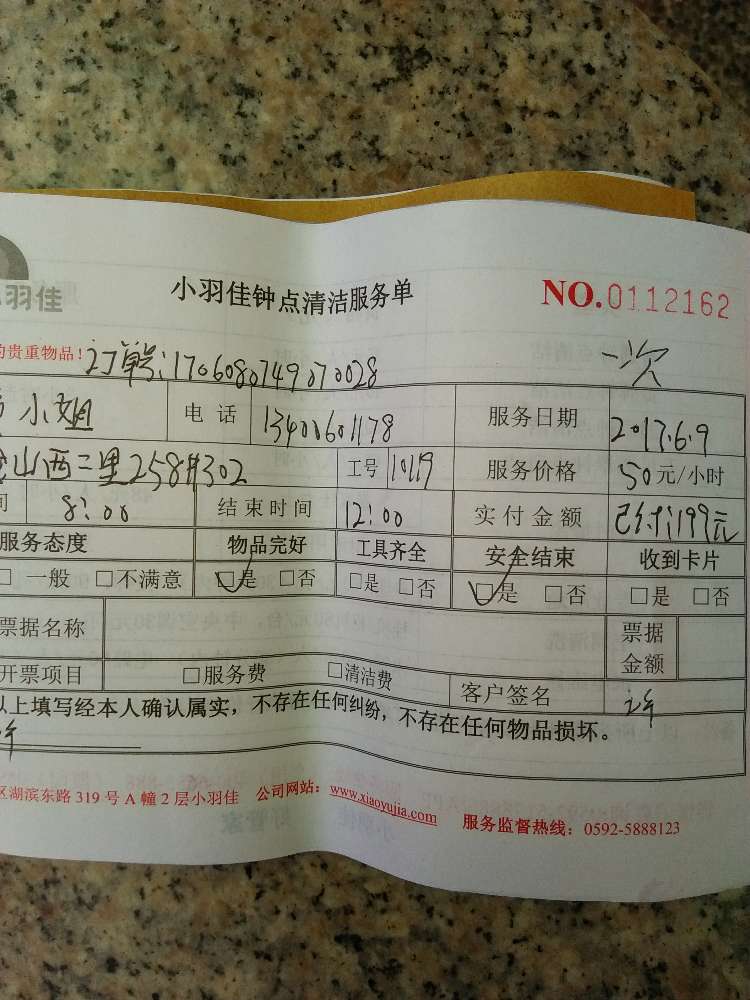 小羽佳钟点清洁服务单 NO.0112162
羽佳
的贵重物品! 订单号:1706080749070028 一次
小姐 电话 13400601178 服务日期 2017.6.9
山西二里258#302 工号 10119 服务价格 50元/小时
间 8:00 结束时间 12:00 实付金额 已付199元
服务态度 物品完好 工具齐全 安全结束 收到卡片
□一般 □不满意 □是 □否 □是 □否 □是 □否 □是 □否
票据名称 票据金额
开票项目 □服务费 □清洁费 客户签名 许
以上填写经本人确认属实,不存在任何纠纷,不存在任何物品损坏。
区湖滨东路319号A幢2层小羽佳 公司网站:www.xiaoyujia.com 服务监督热线:0592-5888123